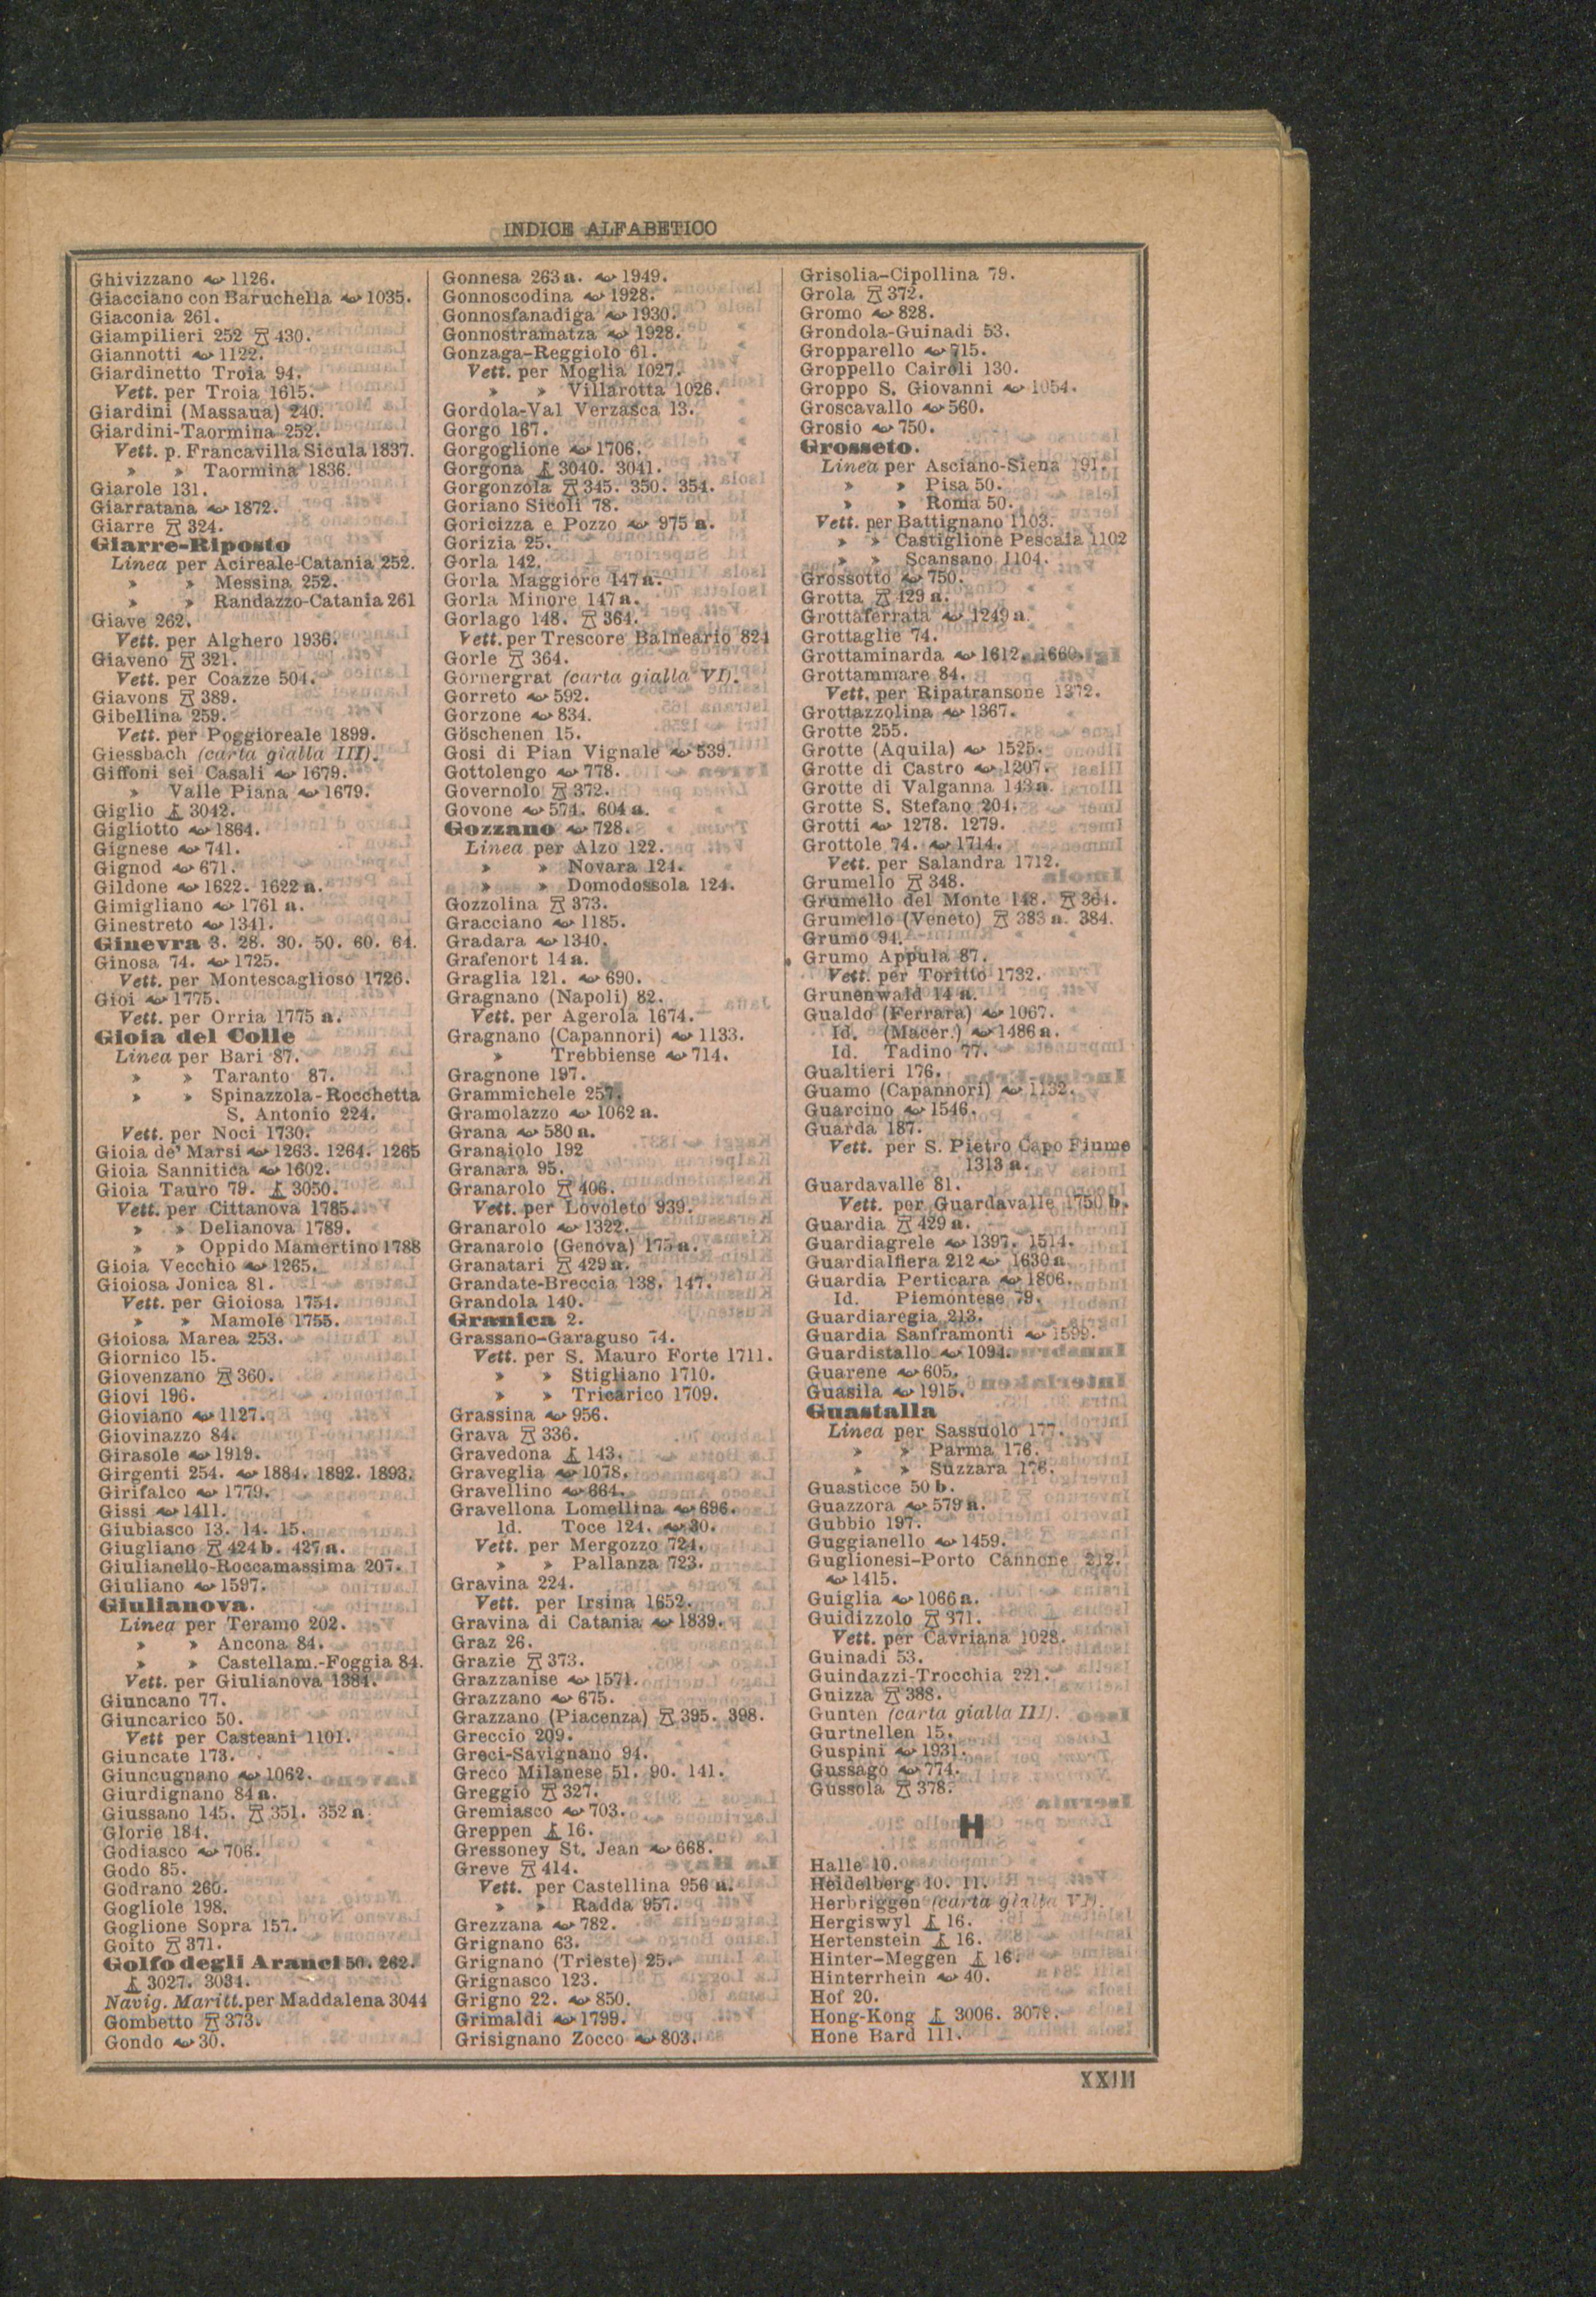 INDICE ALFABETICO
Ghivizzano 1126.
Giacciano con Baruchella 1035.
Giaconia 261.
Giampilieri 252 430.
Giannotti 1122.
Giardinetto Troia 94.
Vett. per Troia 1615.
Giardini (Massaua) 240.
Giardini-Taormina 252.
Vett. p. Francavilla Sicula 1837.
» » Taormina 1836.
Giarole 131.
Giarratana 1872.
Giarre 324.
Giarre-Riposto
Linea per Acireale-Catania 252.
» » Messina 252.
» » Randazzo-Catania 261
Giave 262.
Vett. per Alghero 1936.
Giaveno 321.
Vett. per Coazze 504.
Giavons 389.
Gibellina 259.
Vett. per Poggioreale 1899.
Giessbach (carta gialla III).
Giffoni sei Casali 1679.
» Valle Piana 1679.
Giglio 3042.
Gigliotto 1864.
Gignese 741.
Gignod 671.
Gildone 1622. 1622 a.
Gimigliano 1761 a.
Ginestreto 1341.
Ginevra 3. 28. 30. 50. 60. 64.
Ginosa 74. 1725.
Vett. per Montescaglioso 1726.
Gioi 1775.
Vett. per Orria 1775 a.
Gioia del Colle
Linea per Bari 87.
» » Taranto 87.
» » Spinazzola-Rocchetta
S. Antonio 224.
Vett. per Noci 1730.
Gioia de' Marsi 1263. 1264. 1265
Gioia Sannitica 1602.
Gioia Tauro 79. 3050.
Vett. per Cittanova 1785.
» » Delianova 1789.
» » Oppido Mamertino 1788
Gioia Vecchio 1265.
Gioiosa Jonica 81.
Vett. per Gioiosa 1754.
» » Mamole 1755.
Gioiosa Marea 253.
Giornico 15.
Giovenzano 360.
Giovi 196.
Gioviano 1127.
Giovinazzo 84.
Girasole 1919.
Girgenti 254. 1884. 1892. 1893.
Girifalco 1779.
Gissi 1411.
Giubiasco 13. 14. 15.
Giugliano 424 b. 427 a.
Giulianello-Roccamassima 207.
Giuliano 1597.
Giulianova.
Linea per Teramo 202.
» » Ancona 84.
» » Castellam.-Foggia 84.
Vett. per Giulianova 1384.
Giuncano 77.
Giuncarico 50.
Vett per Casteani 1101.
Giuncate 173.
Giuncugnano 1062.
Giurdignano 84 a.
Giussano 145. 351. 352 a
Glorie 184.
Godiasco 706.
Godo 85.
Godrano 260.
Gogliole 198.
Goglione Sopra 157.
Goito 371.
Golfo degli Aranci 50. 262.
3027. 3034.
Navig. Maritt. per Maddalena 3044
Gombetto 373.
Gondo 30.
Gonnesa 263 a. 1949.
Gonnoscodina 1928.
Gonnosfanadiga 1930.
Gonnostramatza 1928.
Gonzaga-Reggiolo 61.
Vett. per Moglia 1027.
» » Villarotta 1026.
Gordola-Val Verzasca 13.
Gorgo 167.
Gorgoglione 1706.
Gorgona 3040. 3041.
Gorgonzola 345. 350. 354.
Goriano Sicoli 78.
Goricizza e Pozzo 975 a.
Gorizia 25.
Gorla 142.
Gorla Maggiore 147 a.
Gorla Minore 147 a.
Gorlago 148. 364.
Vett. per Trescore Balneario 824
Gorle 364.
Gornergrat (carta gialla VI).
Gorreto 592.
Gorzone 834.
Göschenen 15.
Gosi di Pian Vignale 539.
Gottolengo 778.
Governolo 372.
Govone 574. 604 a.
Gozzano 728.
Linea per Alzo 122.
» » Novara 124.
» » Domodossola 124.
Gozzolina 373.
Gracciano 1185.
Gradara 1340.
Grafenort 14 a.
Graglia 121. 690.
Gragnano (Napoli) 82.
Vett. per Agerola 1674.
Gragnano (Capannori) 1133.
» Trebbiense 714.
Gragnone 197.
Grammichele 257.
Gramolazzo 1062 a.
Grana 580 a.
Granaiolo 192
Granara 95.
Granarolo 406.
Vett. per Lovoleto 939.
Granarolo 1322.
Granarolo (Genova) 175 a.
Granatari 429 a.
Grandate-Breccia 138. 147.
Grandola 140.
Granica 2.
Grassano-Garaguso 74.
Vett. per S. Mauro Forte 1711.
» » Stigliano 1710.
» » Tricarico 1709.
Grassina 956.
Grava 336.
Gravedona 143.
Graveglia 1078.
Gravellino 664.
Gravellona Lomellina 696.
Id. Toce 124. 30.
Vett. per Mergozzo 724.
» » Pallanza 723.
Gravina 224.
Vett. per Irsina 1652.
Gravina di Catania 1839.
Graz 26.
Grazie 373.
Grazzanise 1571.
Grazzano 675.
Grazzano (Piacenza) 395. 398.
Greccio 209.
Greci-Savignano 94.
Greco Milanese 51. 90. 141.
Greggio 327.
Gremiasco 703.
Greppen 16.
Gressoney St. Jean 668.
Greve 414.
Vett. per Castellina 956 a.
» » Radda 957.
Grezzana 782.
Grignano 63.
Grignano (Trieste) 25.
Grignasco 123.
Grigno 22. 850.
Grimaldi 1799.
Grisignano Zocco 803.
Grisolia-Cipollina 79.
Grola 372.
Gromo 828.
Grondola-Guinadi 53.
Gropparello 715.
Groppello Cairoli 130.
Groppo S. Giovanni 1054.
Groscavallo 560.
Grosio 750.
Grosseto.
Linea per Asciano-Siena 191.
» » Pisa 50.
» » Roma 50.
Vett. per Battignano 1103.
» » Castiglione Pescaia 1102
» » Scansano 1104.
Grossotto 750.
Grotta 429 a.
Grottaferrata 1249 a.
Grottaglie 74.
Grottaminarda 1612. 1660.
Grottammare 84.
Vett. per Ripatransone 1372.
Grottazzolina 1367.
Grotte 255.
Grotte (Aquila) 1525.
Grotte di Castro 1207.
Grotte di Valganna 143 a.
Grotte S. Stefano 204.
Grotti 1278. 1279.
Grottole 74. 1714.
Vett. per Salandra 1712.
Grumello 348.
Grumello del Monte 148. 364.
Grumello (Veneto) 383 a. 384.
Grumo 94.
Grumo Appula 87.
Vett. per Toritto 1732.
Grunenwald 14 a.
Gualdo (Ferrara) 1067.
Id. (Macer.) 1486 a.
Id. Tadino 77.
Gualtieri 176.
Guamo (Capannori) 1132.
Guarcino 1546.
Guarda 187.
Vett. per S. Pietro Capo Fiume
1313 a.
Guardavalle 81.
Vett. per Guardavalle 1750 b.
Guardia 429 a.
Guardiagrele 1397. 1514.
Guardialfiera 212 1630 a
Guardia Perticara 1806.
Id. Piemontese 79.
Guardiaregia 213.
Guardia Sanframonti 1599.
Guardistallo 1094.
Guarene 605.
Guasila 1915.
Guastalla
Linea per Sassuolo 177.
» » Parma 176.
» » Suzzara 176.
Guasticce 50 b.
Guazzora 579 a.
Gubbio 197.
Guggianello 1459.
Guglionesi-Porto Cannone 212.
1415.
Guiglia 1066 a.
Guidizzolo 371.
Vett. per Cavriana 1028.
Guinadi 53.
Guindazzi-Trocchia 221.
Guizza 388.
Gunten (carta gialla III).
Gurtnellen 15.
Guspini 1931.
Gussago 774.
Gussola 378.
H
Halle 10.
Heidelberg 10. 11.
Herbriggen (carta gialla VI).
Hergiswyl 16.
Hertenstein 16.
Hinter-Meggen 16.
Hinterrhein 40.
Hof 20.
Hong-Kong 3006. 3079.
Hone Bard 111.
XXIII